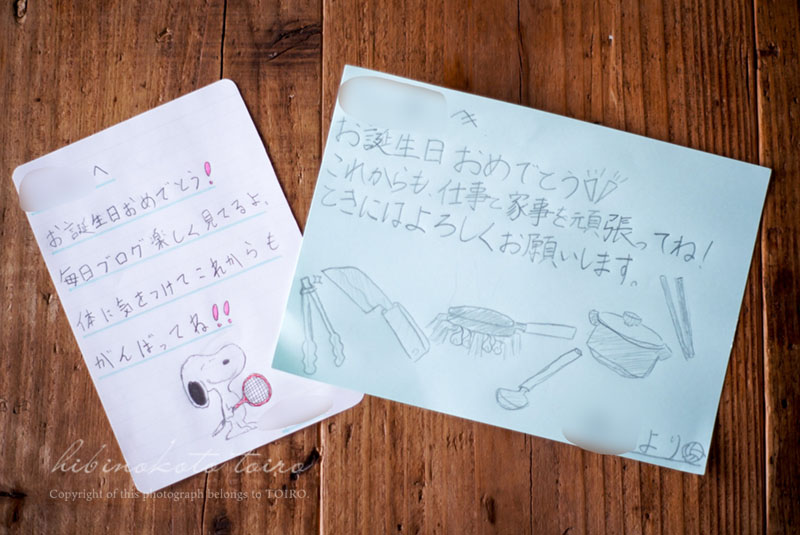 へ
お誕生日おめでとう!
毎日ブログ楽しく見てるよ、
体に気をつけてこれからも
がんばってね!!
へ
お誕生日おめでとう!!
これからも、仕事と家事を頑張ってね!
ときにはよろしくお願いします。
より
hibinokoto toiro
Copyright of this photograph belongs to TOIRO.